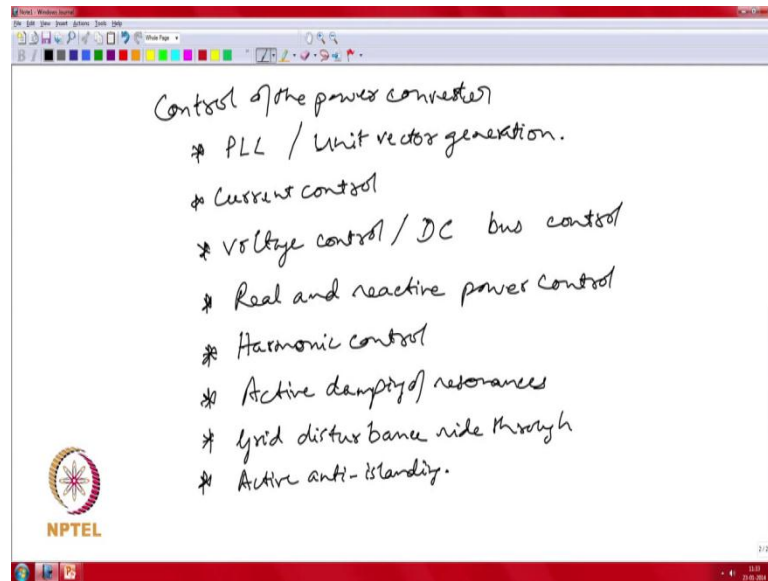 Note1 - Windows Journal
File Edit View Insert Actions Tools Help
Whole Page
B I
Control of the power converter
* PLL / Unit vector generation.
* Current control
* Voltage control / DC bus control
* Real and reactive power control
* Harmonic control
* Active damping of resonances
* Grid disturbance ride through
* Active anti-islanding.
NPTEL
2/2
11:33
23-01-2014